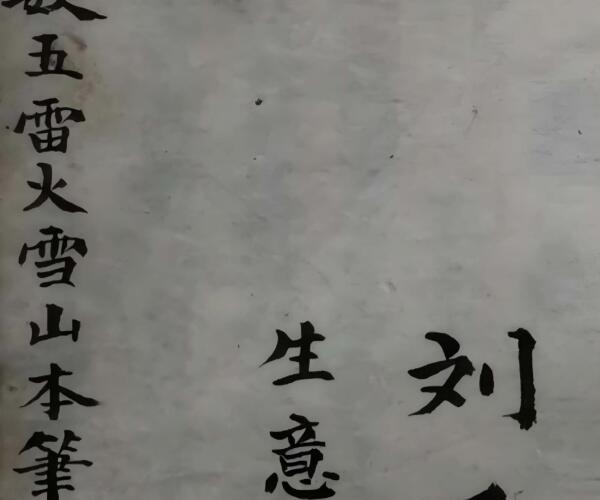 刘
生意
五雷火雪山本筆